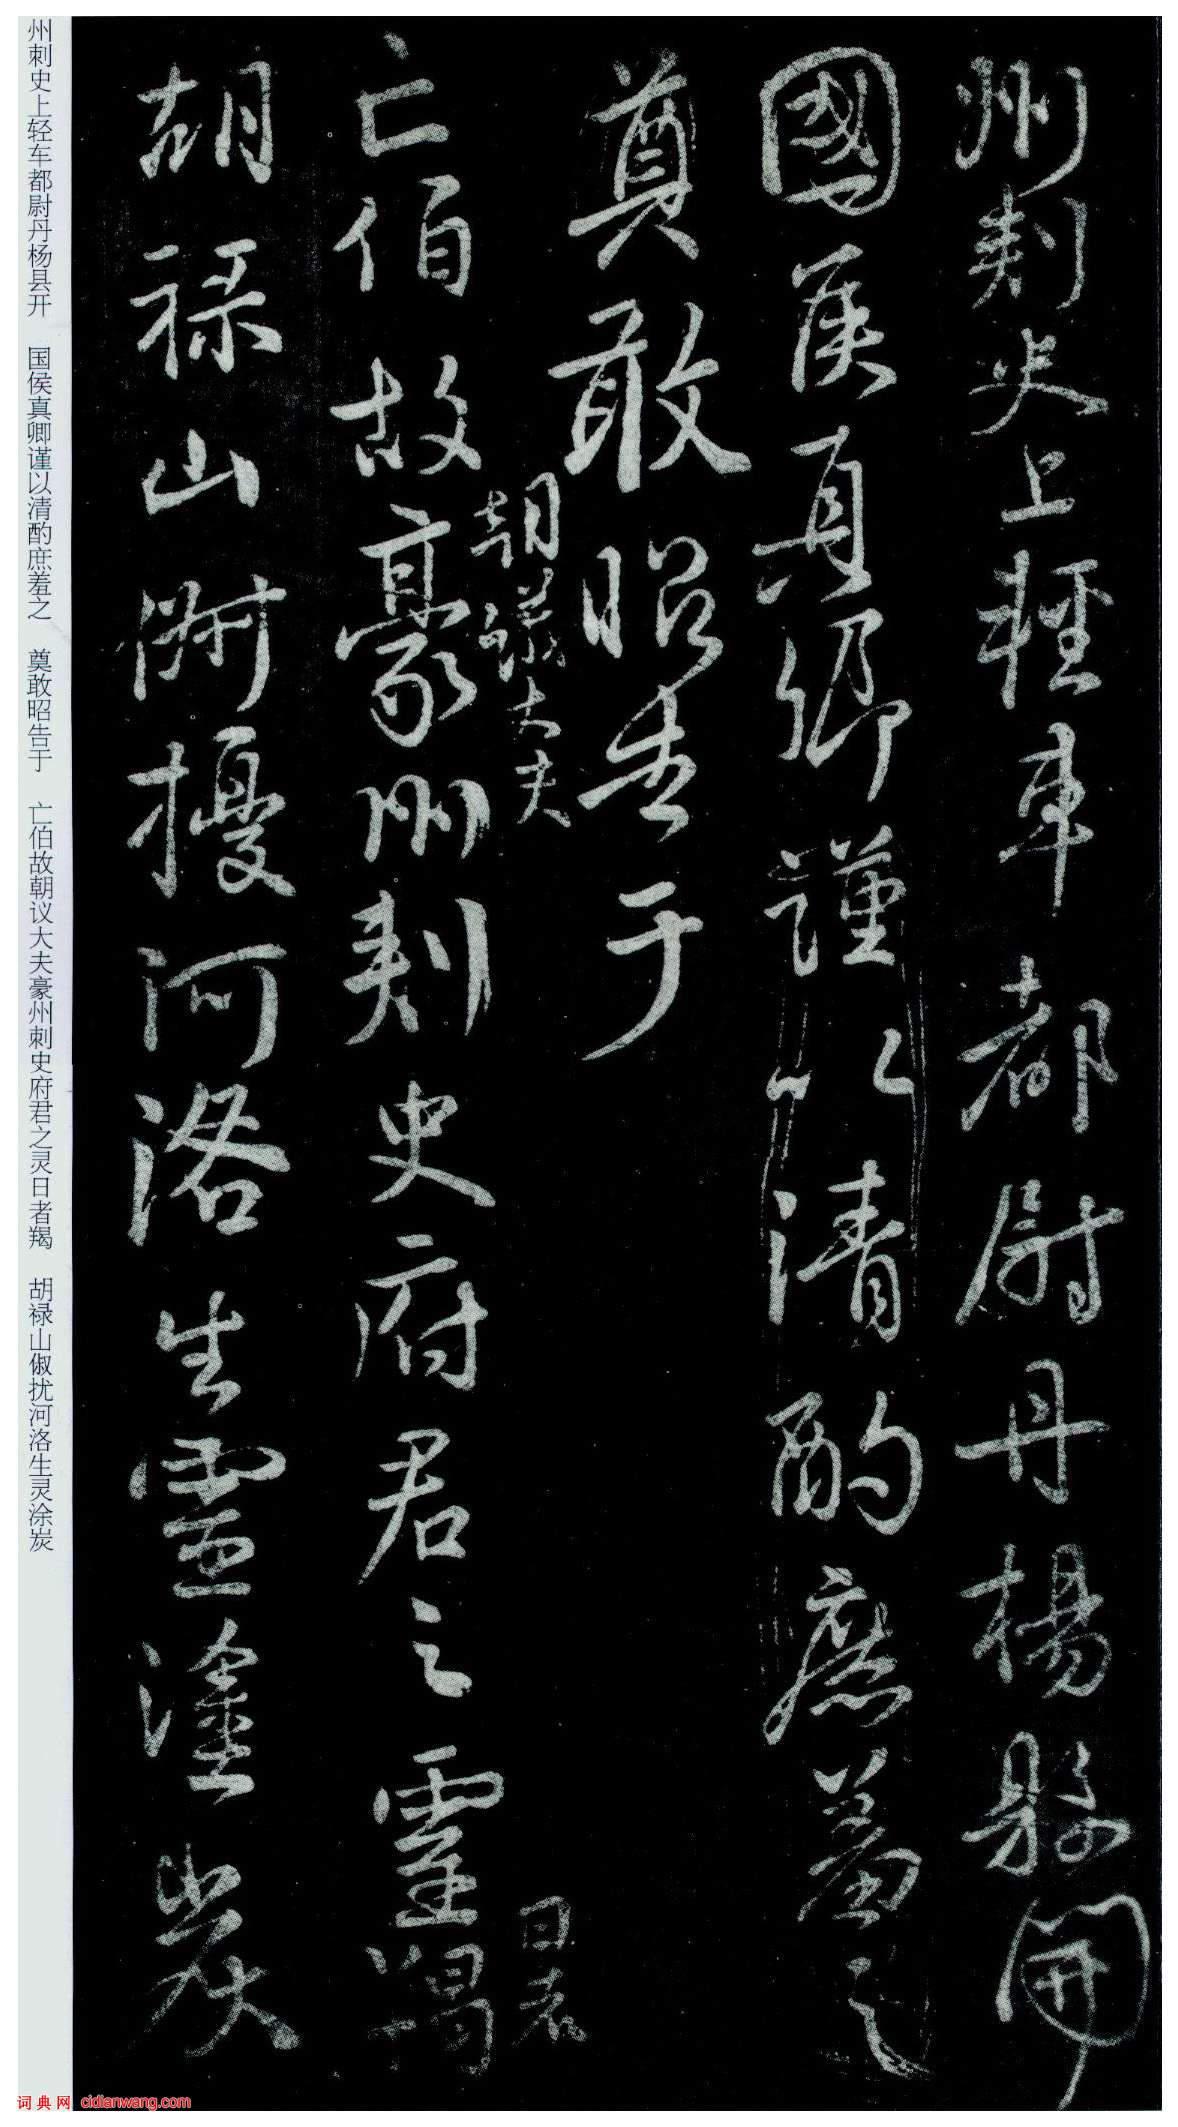 州刺史上輕車都尉丹楊縣開
國侯真卿謹以清酌庶羞之
奠敢昭告于
朝議大夫
日者
亡伯故豪州刺史府君之靈羯
胡祿山俶擾河洛生靈塗炭
州刺史上轻车都尉丹杨县开 国侯真卿谨以清酌庶羞之 奠敢昭告于 亡伯故朝议大夫豪州刺史府君之灵日者羯 胡禄山俶扰河洛生灵涂炭
词典网 cidianwang.com